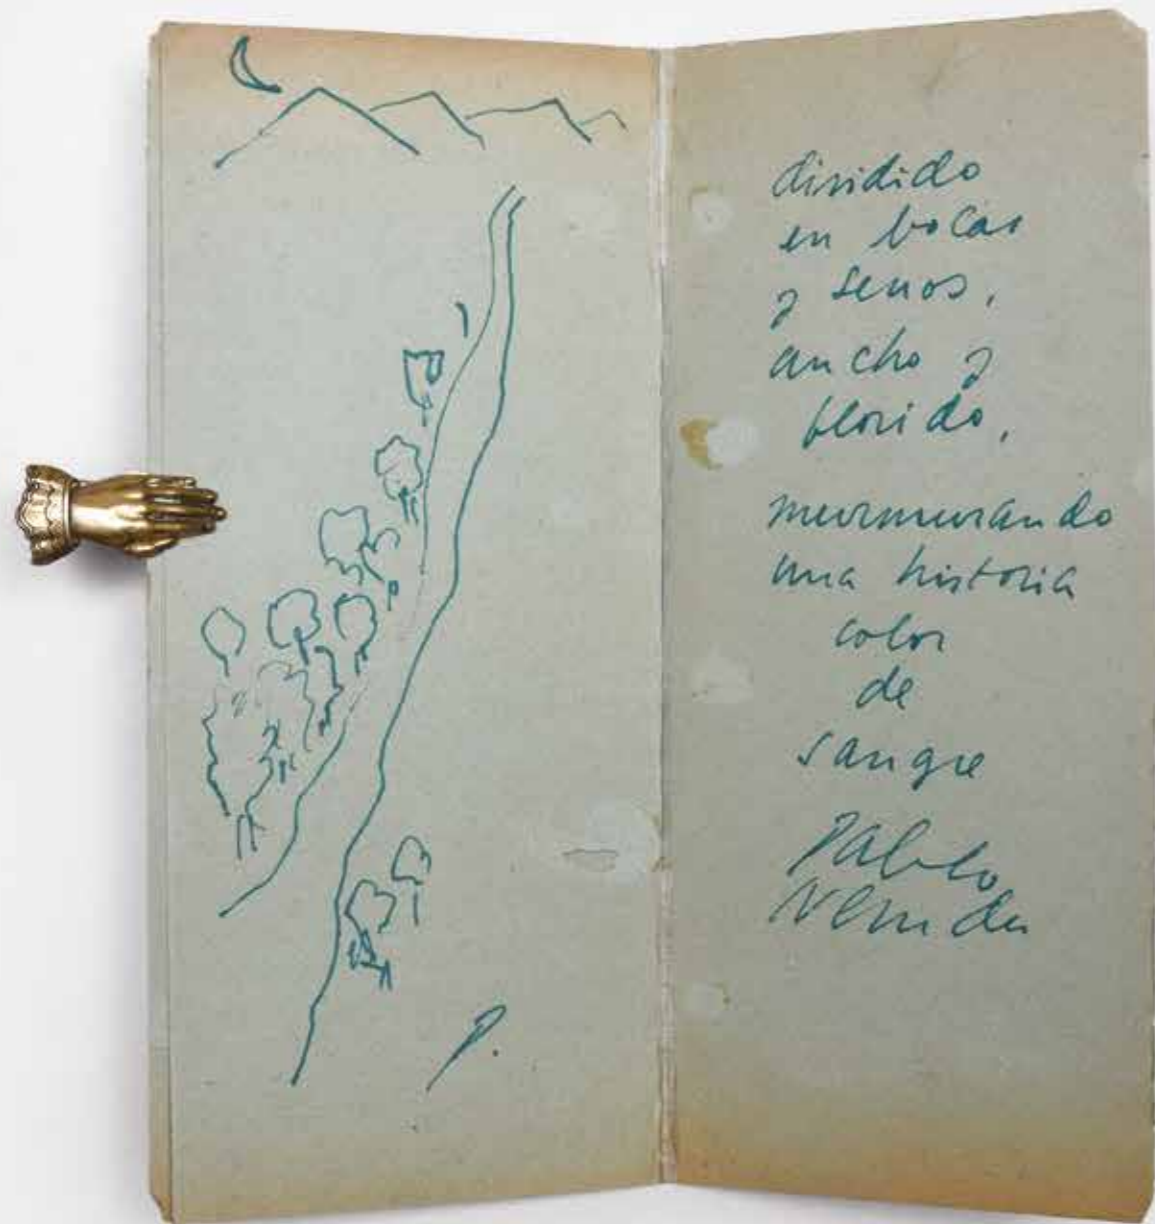 P.
dividido
en bocas
y senos,
ancho y
florido,
murmurando
una historia
color
de
sangre
Pablo
Neruda